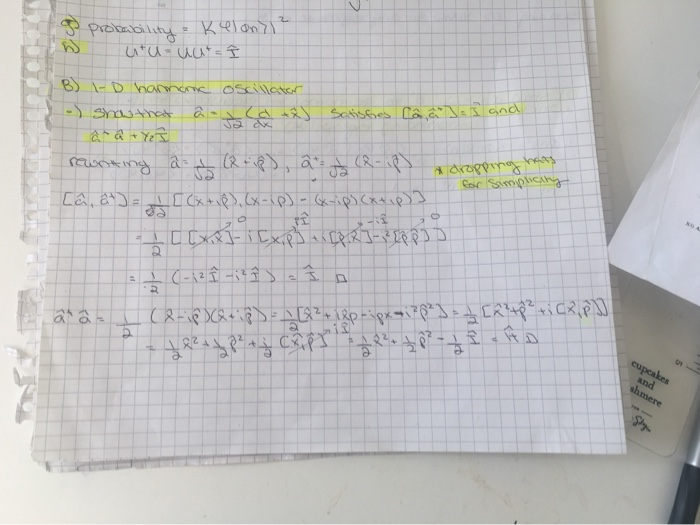 g) probability = |<φ|Φn>|²
h) U⁺U = UU⁺ = Î
B) 1-D harmonic oscillator
-) Show that â = 1/√2 (d/dx + x̂) satisfies [â, â⁺] = Î and
â⁺â + ½Î
rewriting â = 1/√2 (x̂ + ip̂), â⁺ = 1/√2 (x̂ - ip̂) * dropping hats
for simplicity
[â, â⁺] = 1/2 [(x+ip), (x-ip) - (x-ip)(x+ip)]
= 1/2 [[x,x] - i[x,p] + i[p,x] - i²[p,p]]
= 1/2 (-i²Î - i²Î) = Î □
â⁺â = 1/2 (x̂ - ip̂)(x̂ + ip̂) = 1/2 [x̂² + ixp - ipx - i²p̂²] = 1/2 [x̂² + p̂² + i[x̂,p̂]]
= 1/2 x̂² + 1/2 p̂² + 1/2 [x̂,p̂] iÎ = 1/2 x̂² + 1/2 p̂² - 1/2 Î = Ĥ □
cupcakes
and
shmere